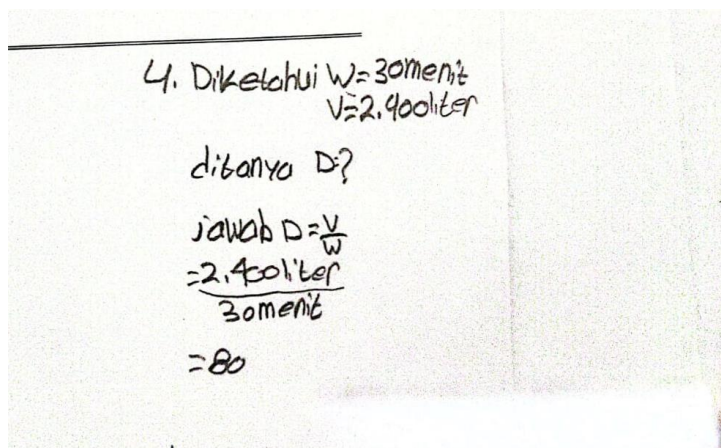 4. Diketahui W=30menit
V=2.400liter
ditanya D?
jawab D=V/W
=2.400liter
30menit
=80